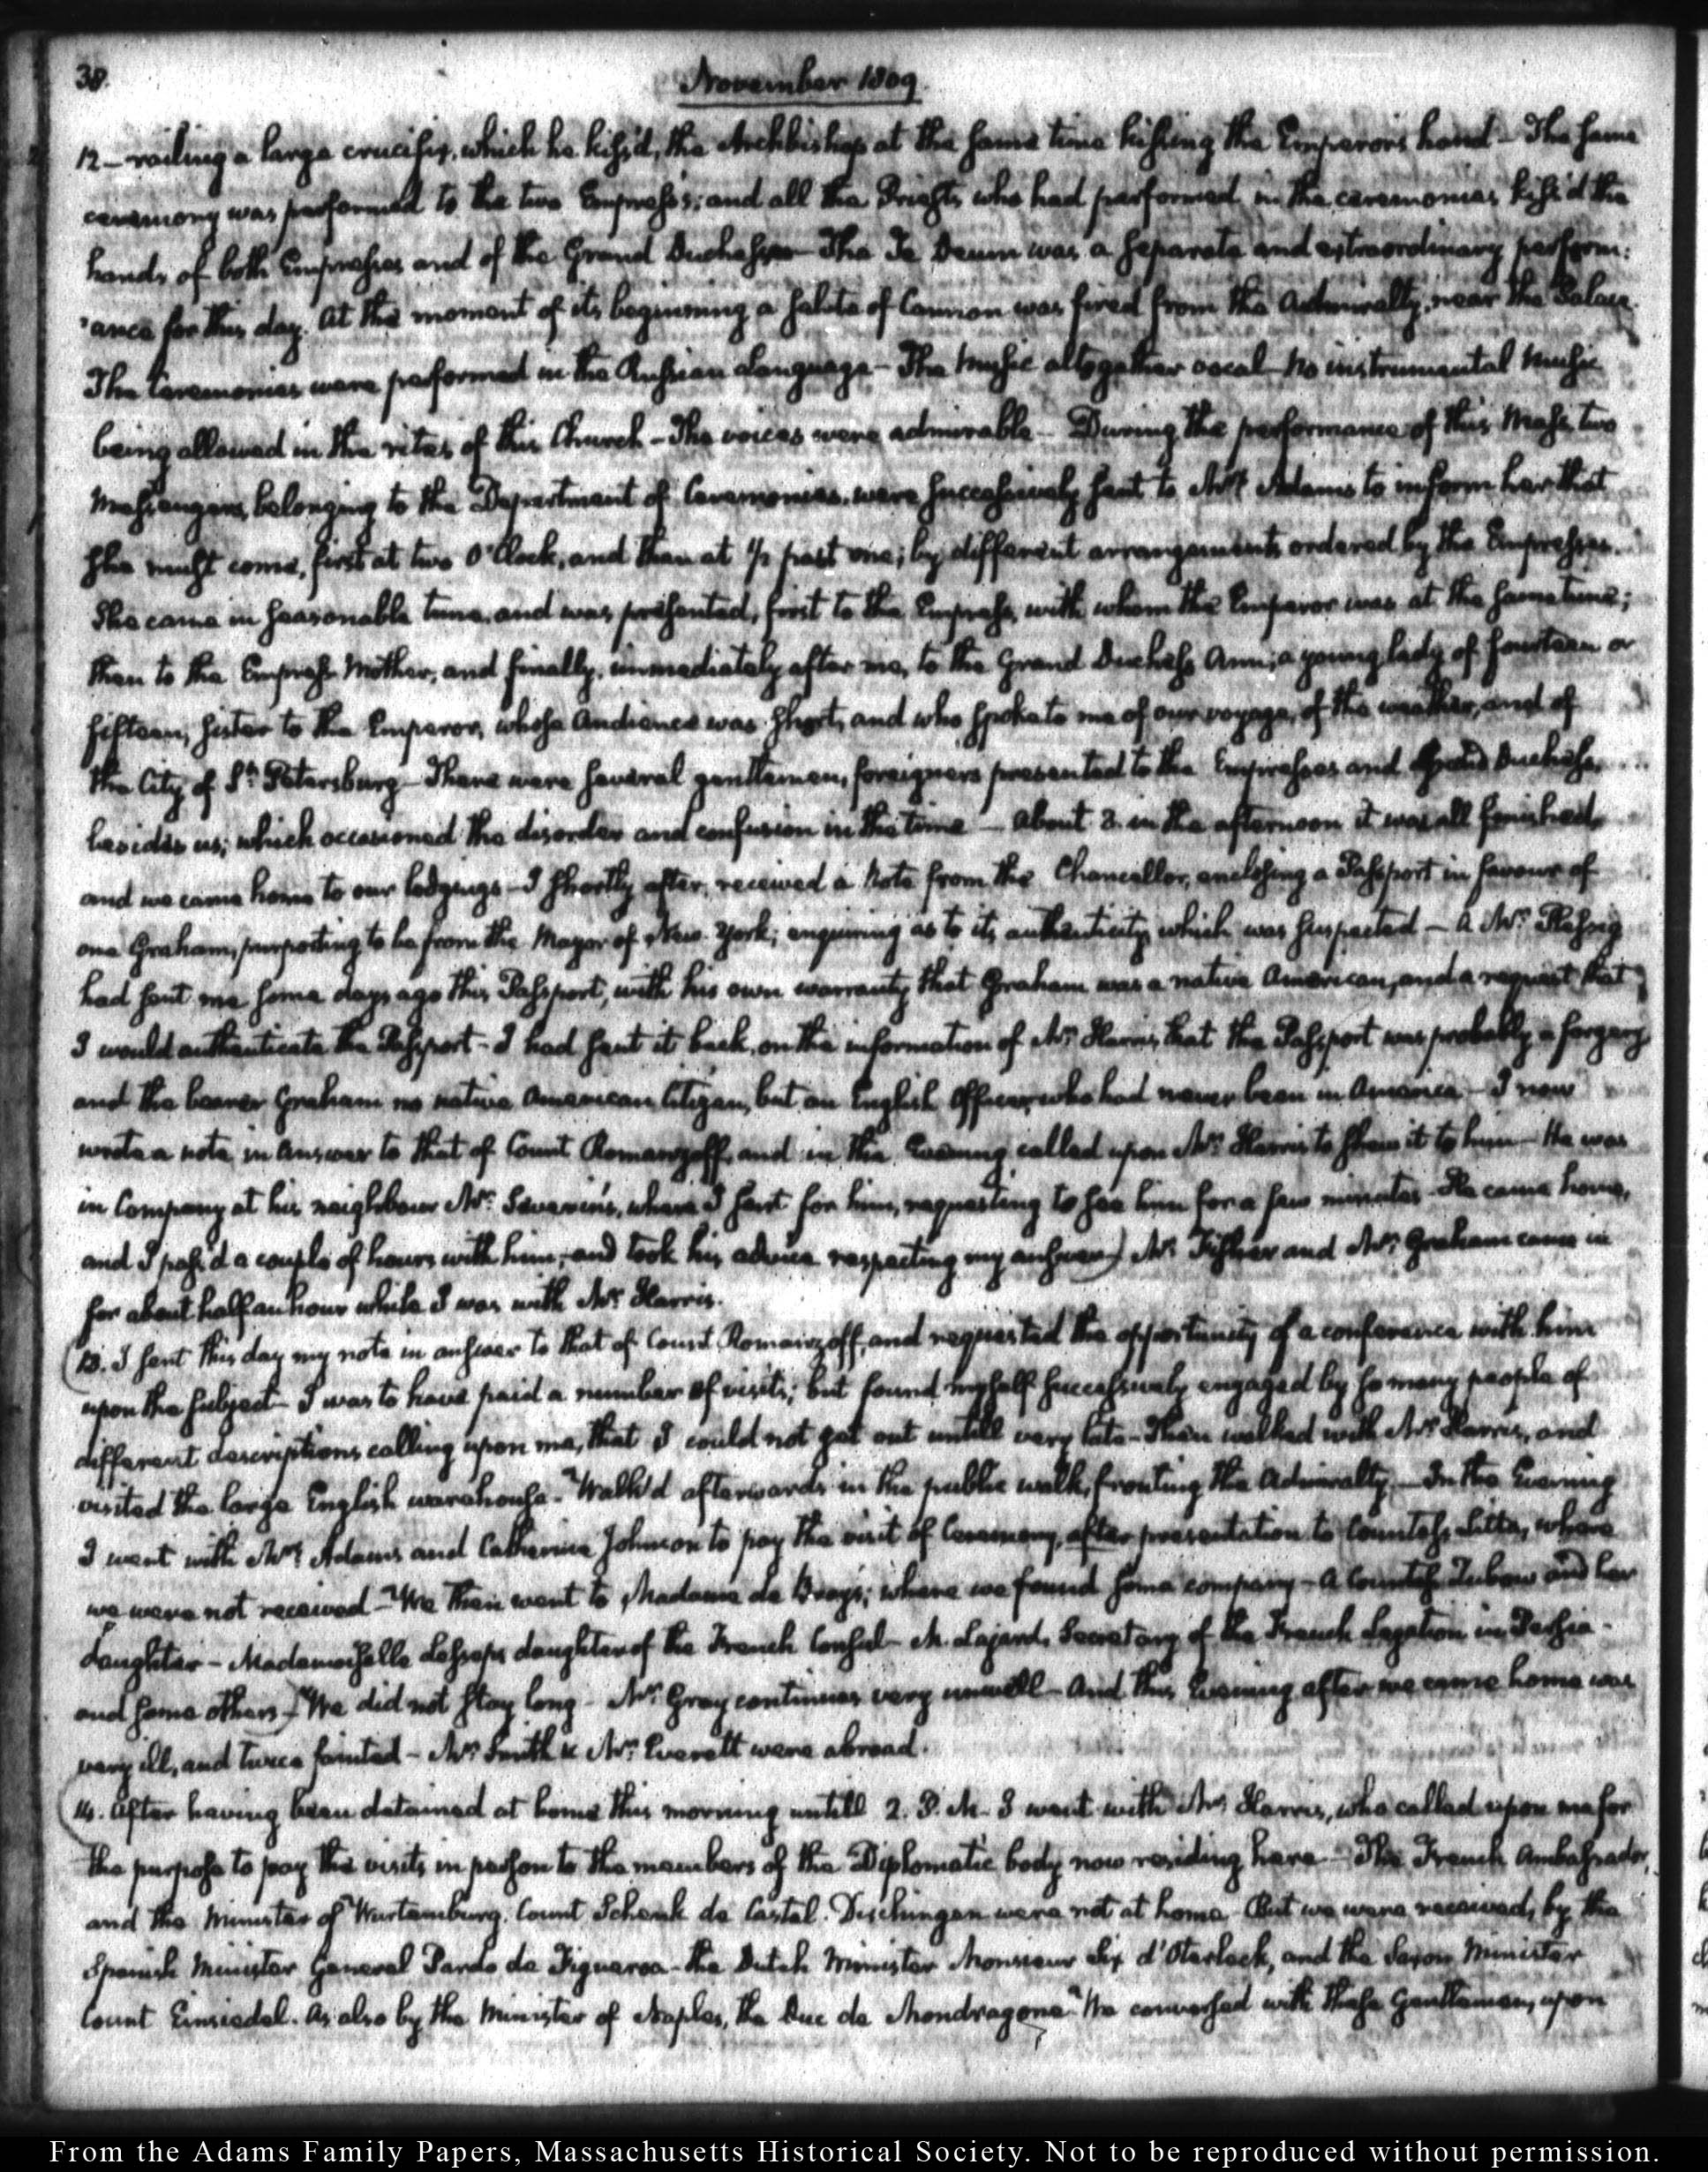 38.
November 1809.
12 — vailing a large crucifix, which he kiss'd, the Archbishop at the same time kissing the Emperor's hand — The same
ceremony was performed to the two Empress's; and all the Priests who had performed in the ceremonies kiss'd the
hands of both Empresses and of the Grand Duchess — The Te Deum was a separate and extraordinary perform:
:ance for this day. At the moment of its beginning a salute of Cannon was fired from the Admiralty, near the Palace.
The Ceremonies were performed in the Russian Language — The Music altogether vocal — no instrumental Music
being allowed in the rites of this Church — The voices were admirable — During the performance of this Mass, two
Messengers, belonging to the Department of Ceremonies, were successively sent to Mrs. Adams to inform her that
she must come, first at two O'Clock, and then at 1/2 past one; by different arrangements ordered by the Empresses.
She came in seasonable time, and was presented, first to the Empress, with whom the Emperor was at the same time;
then to the Empress Mother, and finally, immediately after me, to the Grand Duchess Ann; a young lady of fourteen or
fifteen, sister to the Emperor, whose Audience was short, and who spoke to me of our voyage, of the weather, and of
the City of St. Petersburg — There were several gentlemen, foreigners presented to the Empresses and Grand Duchess,
besides us; which occasioned the disorder and confusion in the time — About 3 in the afternoon it was all finished,
and we came home to our lodgings — I shortly after, received a Note from the Chancellor, enclosing a Passport in favour of
one Graham, purporting to be from the Mayor of New-York; enquiring as to its authenticity, which was suspected — A Mr.
had sent me some days ago this Passport, with his own warranty that Graham was a native American, and a request that
I would authenticate the Passport — I had sent it back, on the information of Mr. Harris, that the Passport was probably a forgery,
and the bearer Graham no native American Citizen, but an English Officer who had never been in America — I now
wrote a note in answer to that of Count Romanzoff, and in the Evening called upon Mr. Harris to shew it to him — He was
in Company at his neighbour Mr. Severin's, where I sent for him, requesting to see him for a few minutes — He came home,
and I pass'd a couple of hours with him, and took his advice respecting my answer) Mr. Fisher and Mr. Graham came in
for about half an hour while I was with Mr. Harris.
13. I sent this day my note in answer to that of Count Romanzoff, and requested the opportunity of a conference with him
upon the subject — I was to have paid a number of visits; but found myself successively engaged by so many people of
different descriptions calling upon me, that I could not get out untill very late — Then walked with Mr. Harris, and
visited the large English warehouse — Walk'd afterwards in the public walk, fronting the Admiralty — In the Evening
I went with Mrs. Adams and Catherine Johnson to pay the visit of Ceremony, after presentation to Countess Litta, where
we were not received — We then went to Madame de Bray's; where we found some company — A Countess and her
daughter — Mademoiselle Lesseps daughter of the French Consul — M. Lajard, Secretary of the French Legation in Persia —
and some others) We did not stay long — Mr. Gray continues very unwell — And this Evening after we came home was
very ill, and twice fainted — Mr. Smith & Mr. Everett were abroad.
14. After having been detained at home this morning untill 2. P.M. I went with Mr. Harris, who called upon me for
the purpose to pay the visits in person to the members of the Diplomatic body now residing here — The French Ambassador,
and the Minister of Wurtemburg, Count Schenk de Castel-Dischingen were not at home. But we were received, by the
Spanish Minister General Pardo de Figueroa — the Dutch Minister Monsieur Six d'Oterleek, and the Saxon Minister
Count Einsiedel. As also by the Minister of Naples, the Duc de Mondragone. We conversed with these Gentlemen, upon
From the Adams Family Papers, Massachusetts Historical Society. Not to be reproduced without permission.